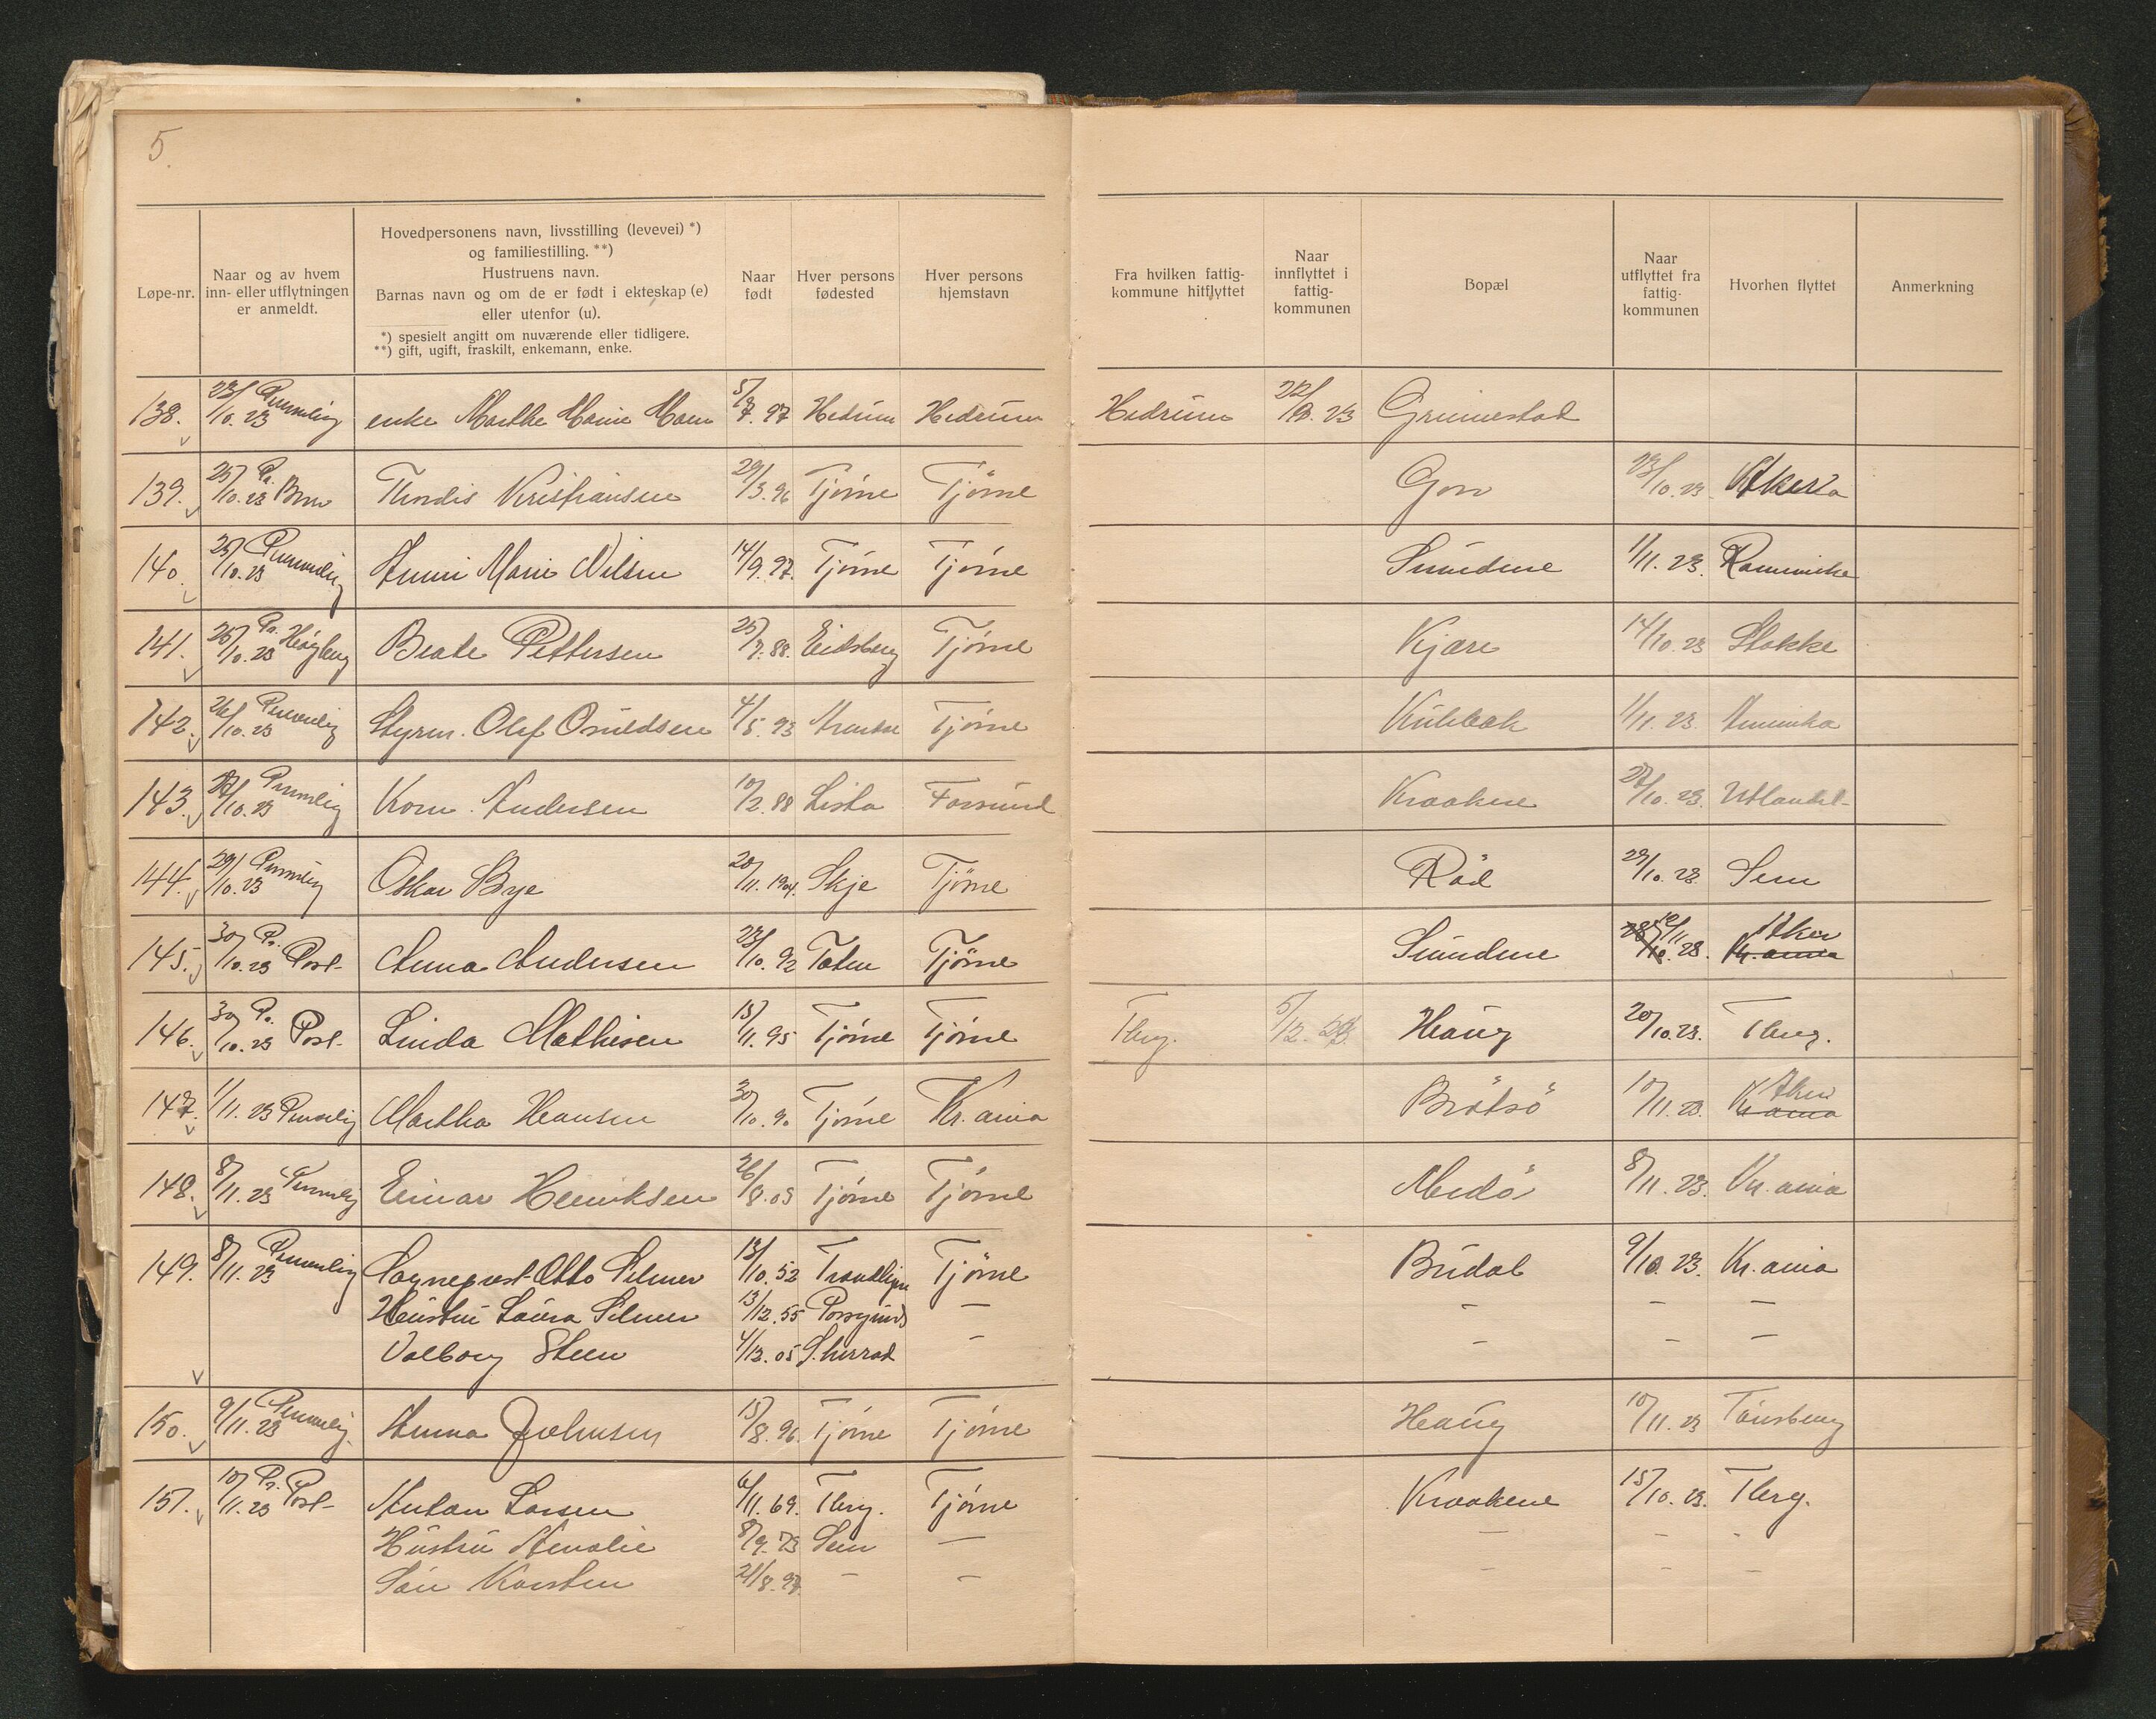 5.
Løpe-nr.
Naar og av hvem
inn- eller utflytningen
er anmeldt.
Hovedpersonens navn, livsstilling (levevei) *)
og familiestilling. **)
Hustruens navn.
Barnas navn og om de er født i ekteskap (e)
eller utenfor (u).
*) spesielt angitt om nuværende eller tidligere.
**) gift, ugift, fraskilt, enkemann, enke.
Naar
født
Hver persons
fødested
Hver persons
hjemstavn
Fra hvilken fattig-
kommune hitflyttet
Naar
innflyttet i
fattig-
kommunen
Bopæl
Naar
utflyttet fra
fattig-
kommunen
Hvorhen flyttet
Anmerkning
138. 23/10.23 Personlig enke Marthe Marie 5/7.97 Hedrum Hedrum Hedrum Grimestad
139. 25/10.23 Pr. Kristiansen 29/3.96 Tjöme Tjöme 23/10.23
140. 25/10.23 Personlig Anni Marie Nilsen 14/9.97. Tjöme Tjöme Sundene 1/11.23.
141. 26/10.23 Pr. Beate Pettersen 25/7.88. Eidsberg Tjöme Kjære 14/10.23 Stokke
142. 26/10.23 Personlig Styrm. Olaf 4/5.93 Tjöme 1/11.23. Amerika
143. 27/10.23 Personlig Andersen 10/2.88 Lista Kraakere 27/10.23.
144. 29/10.23 Personlig Oskar Bye 20/11.1904. Skje Tjöme Röd 29/10.23. Sem
145. 30/10.23 Pr. Post- Anna Andersen 23/10.92 Toten Tjöme Sundene 10/11 28/10.23. Aker Kr.ania
146. 30/10.23 Pr. Post- Linda Mathisen 15/11.95 Tjöme Tjöme Tbrg. 5/12. Haug 20/10.23. Tbrg.
147. 1/11.23 Personlig Martha Hansen 30/10.90 Tjöme Kr.ania Brötsö 10/11.23. Aker Kr.ania
148. 8/11.23 Personlig Einar Henriksen 26/8.05 Tjöme Tjöme Medö 8/11.23. Kr.ania
149. 8/11.23 Personlig Sogneprest Otto Silmer 13/10.52 Tjöme Budal 9/10.23. Kr.ania
Hustru Laura Silmer 13/12.55 Porsgrund — — — —
Valborg Steen 4/12.05 — — — —
150. 9/11.23 Personlig Anna Johnsen 15/8.96. Tjöme Tjöme Haug 10/11.23 Tönsberg
151. 10/11.23 Pr. Post- Anton Larsen 6/11.69. Tbrg. Tjöme Kraakere 15/10.23. Tbrg.
Hustru Amalie 8/9.73 Sem — — — -
Sön Karsten 21/8.97. — — — — -